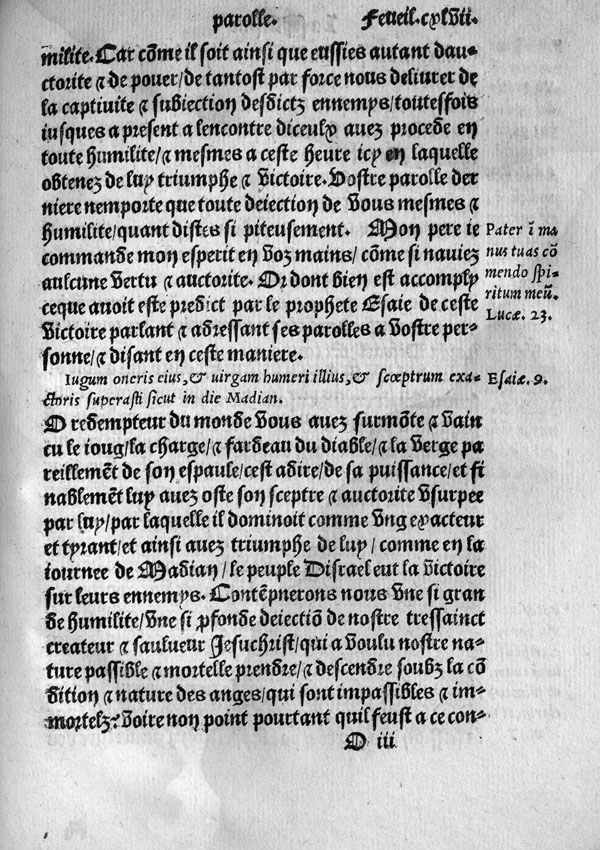 parolle. Feueil. cxlvii.
milite. Car cõme il soit ainsi que eussies autant dau-
ctorite & de pouer/ de tantost par force nous deliurer de
la captiuite & subiection desdictz ennemys/ toutesfois
iusques a present a lencontre diceulx auez procede en
toute humilite/ & mesmes a ceste heure icy en laquelle
obtenez de luy triumphe & victoire. Vostre parolle der
niere nemporte que toute deiection de vous mesmes &
humilite/ quant distes si piteusement. Mon pere ie
commande mon esperit en voz mains/ cõme si nauiez
aulcune vertu & auctorite. Or dont bien est accomply
ceque auoit este predict par le prophete Esaie de ceste
victoire parlant & adressant ses parolles a vostre per-
sonne/ & disant en ceste maniere.
Pater ĩ ma
nus tuas cõ
mendo spi-
ritum meũ.
Lucæ. 23.
Iugum oneris eius, & uirgam humeri illius, & sceptrum exa-
ctoris superasti sicut in die Madian.
Esaiæ. 9.
O redempteur du monde vous auez surmõte & vain
cu le ioug/ la charge/ & fardeau du diable/ & la verge pa
reillemẽt de son espaule/ cest adire/ de sa puissance/ et fi
nablemẽt luy auez oste son sceptre & auctorite vsurpee
par luy/ par laquelle il dominoit comme vng exacteur
et tyrant/ et ainsi auez triumphe de luy/ comme en la
iournee de Madian/ le peuple Disrael eut la victoire
sur leurs ennemys. Contẽpnerons nous vne si gran
de humilite/ vne si ꝓfonde deiectiõ de nostre tressainct
createur & saulueur Jesuchrist/ qui a voulu nostre na-
ture passible & mortelle prendre/ & descendre soubz la cõ
dition & nature des anges/ qui sont impassibles & im-
mortelz? Voire non point pourtant quil feust a ce con-
O iii